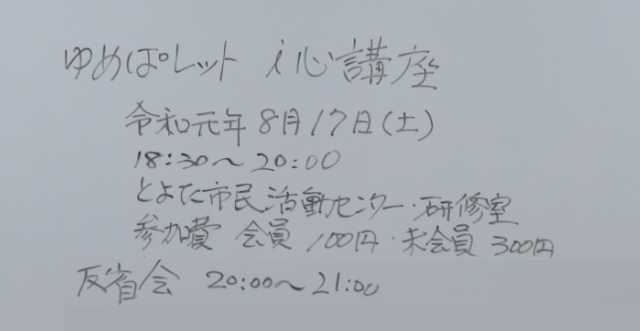 ゆめぱレット i心講座
令和元年8月17日(土)
18:30〜20:00
とよた市民活動センター・研修室
参加費 会員 100円・未会員 300円
反省会 20:00〜21:00